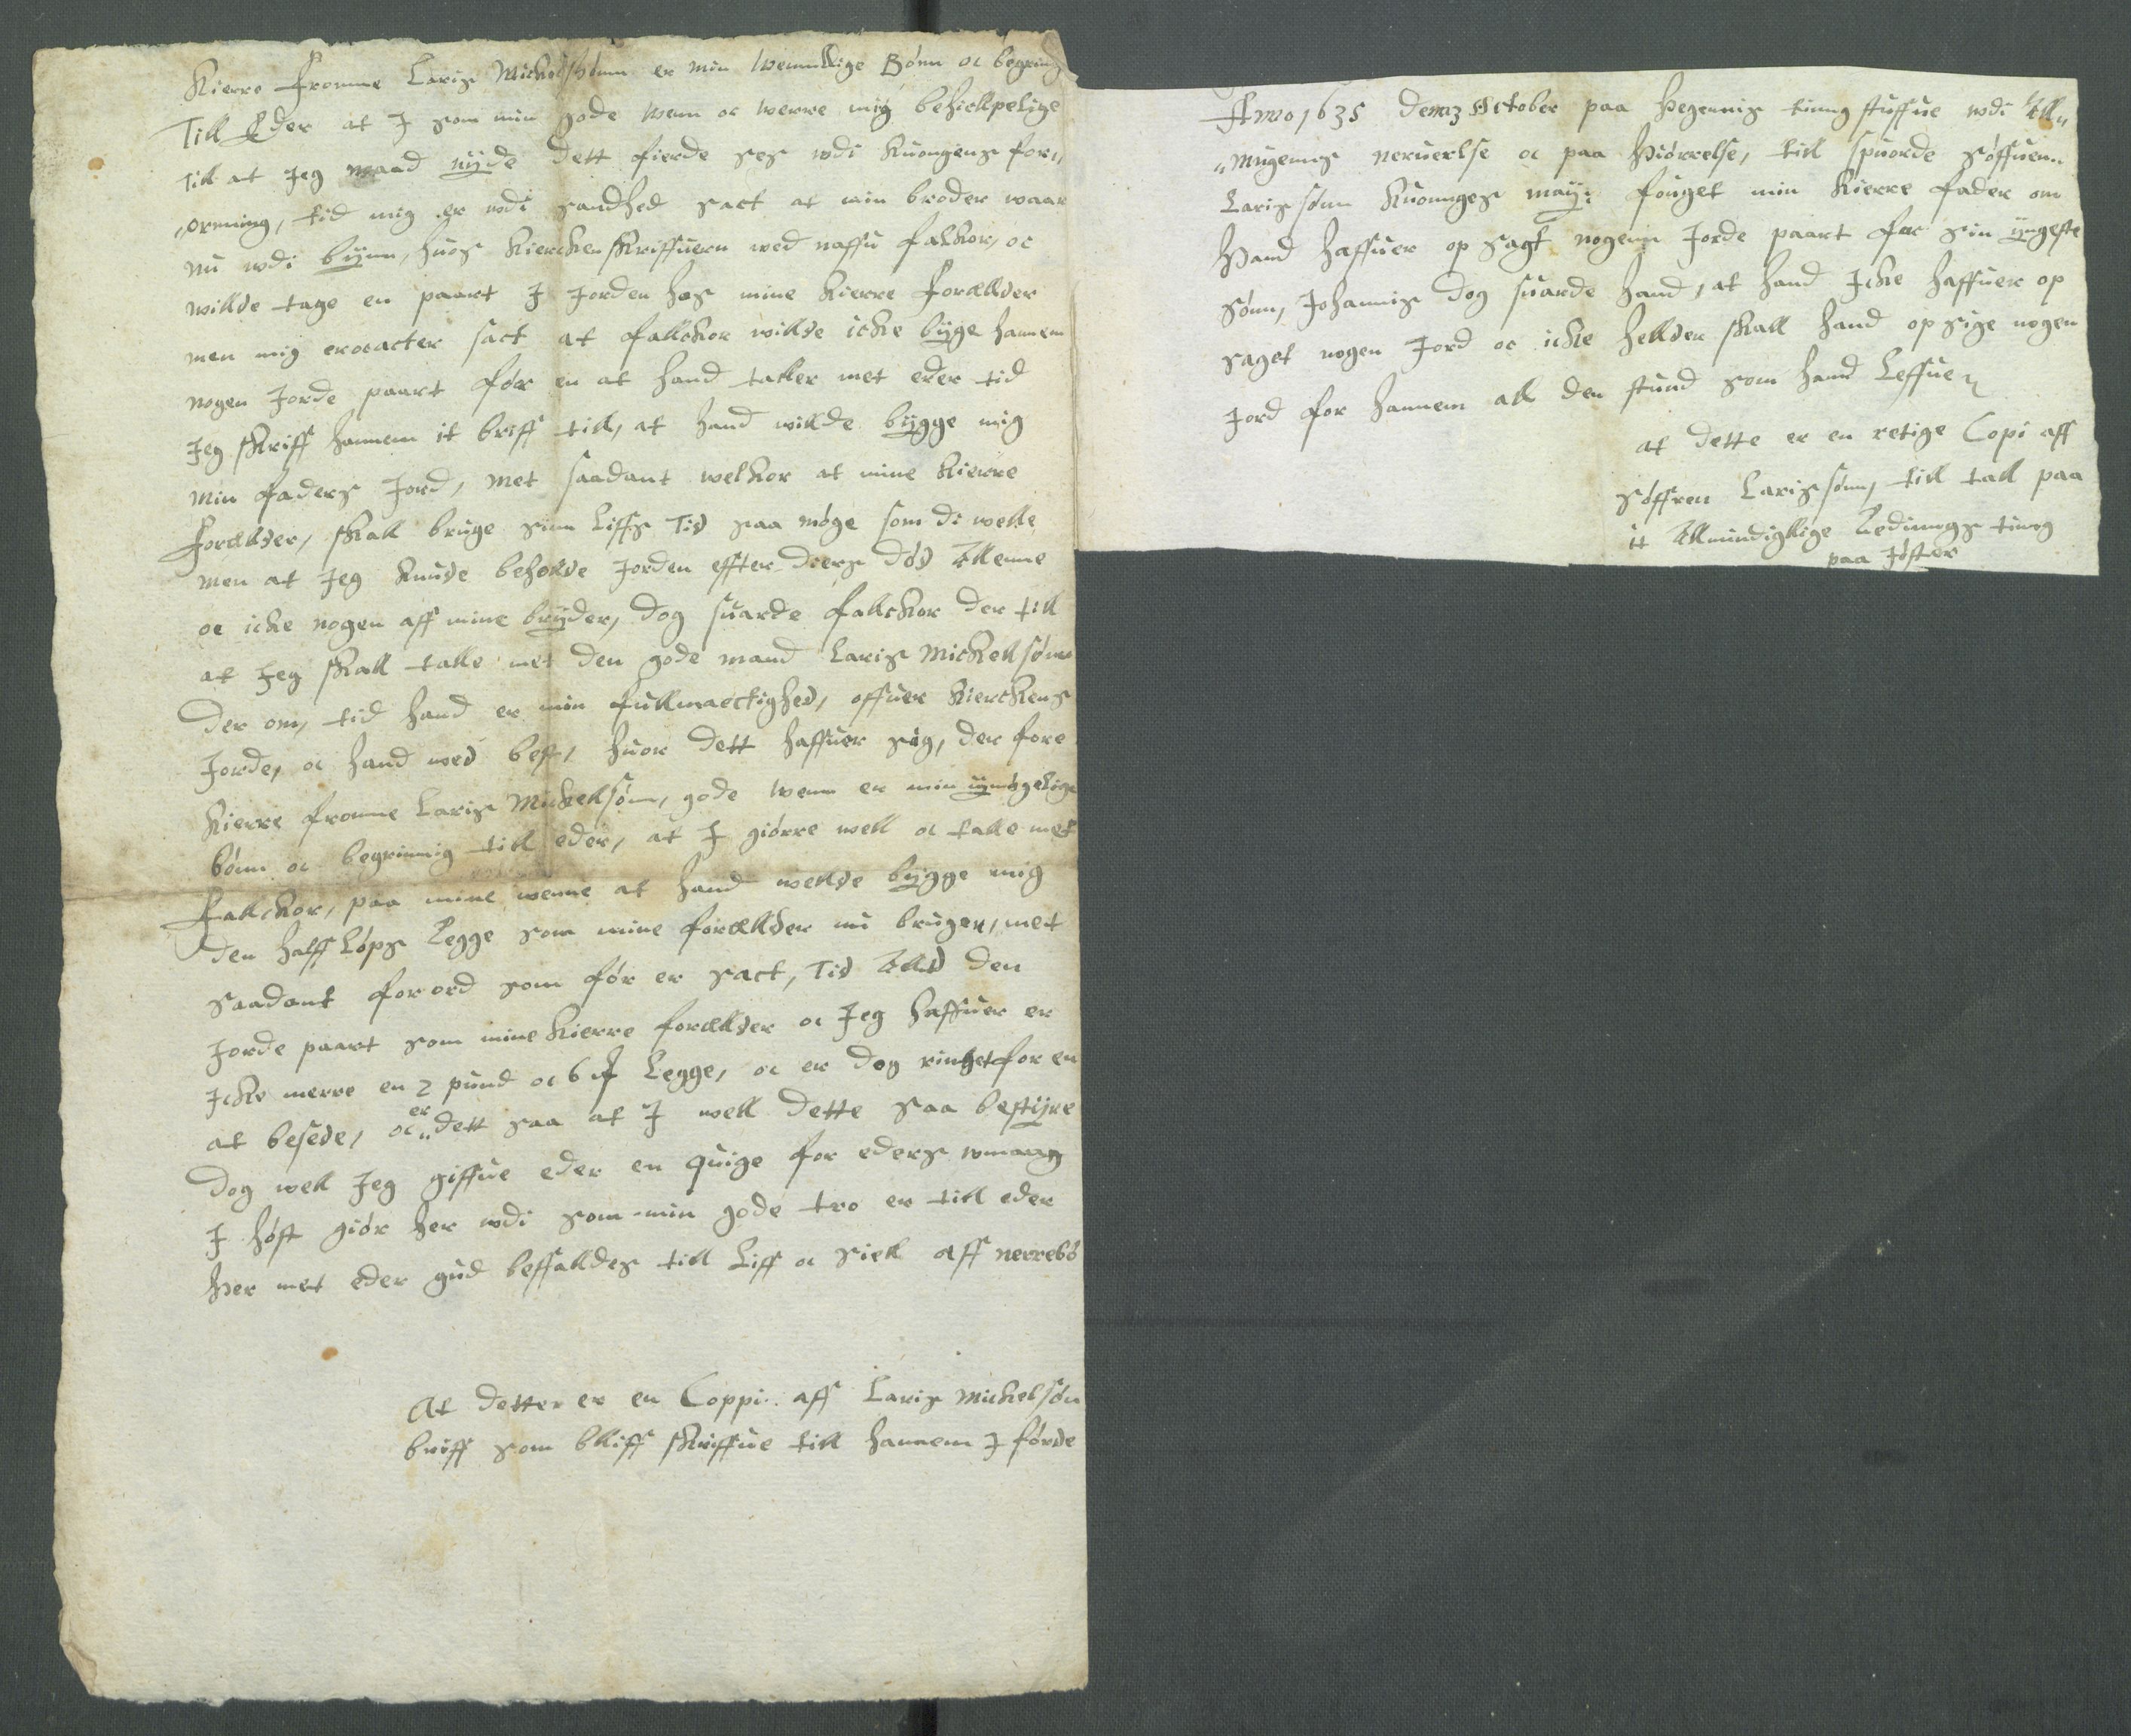 Kierre Fromme Laris Mickelsønn er min wennllige Bønn oc begring
Till Eder at I som min gode wenn oc werre mig behiellpelige
Till at Jeg maad nÿde dett fierde ses wdi Kuongens for„
„orning, tid mig er wdi sandhed sact at min broder waar
nu wdi bÿnn, huos KierckenSkriffuern wed naffn falkor, oc
willde tage en paart I Jorden hos mine Kierre Foræellder
men mig er oc acter sact at fallckor willde icke bÿge hannem
nogen Jorde paart før en at hand taller met eder tid
Jeg skriff hannem it briff till, at hand willde bÿgge mig
min faders Jord, met saadant welkor at mine Kierre
Forældder, skall bruge sinn Liffs Tid saa møge som di welle
men at Jeg kunde beholde Jorden effter diers død Allenne
oc icke nogen aff mine brÿder, dog suarde fallckor der till
at Jeg skall talle met den gode mand Laris Mickellsønn
der om, tid hand er min fullmæctighed, offuer Kierckens
Jorde, oc hand wed best, huor dett haffuer sig, der fore
Kierre fromme Laris Mickellsønn, gode wenn er min ÿmÿgelige
bønn oc begrinnig till eder, at I giørre well oc talle met
Fallckor, paa mine wenne at hand wellde bÿgge mig
den halff Løps Legge som mine forældder nu bruger, met
saadant for ord som før er sact, Tid Alld den
Jorde paart som mine Kierre forældder oc Jeg haffuer er
Icke merre en 2 pund oc 6 Legge, oc er dog ringhet for en
at besede, oc er dett saa at I well dette saa bestÿre
dog well Jeg giffue eder en quige for eders wmaag
I høst giør her wdi som min gode tro er till eder
Her met eder gud beffalldes till Liff oc siell aff nerrebø

At detter er en Coppi aff Laris Mickelsøn
briff som bleff skriffue till hannem I førde

Anno 1635 den 13 October paa Hegennis tinng stuffue wdi All„
„mugenns neruerlse oc paa Hiørrelse, till spuorde Søffuenn
Larissønn Kuonnges maÿ: fouget min Kierre fader om
Hand haffuer op sagt nogenn Jorde paart for sin ÿngeste
sønn, Johannis dog suarde hand, at hand Icke haffuer op
saget nogen Jord oc icke hellder skall hand op sige nogen
Jord for hannem all den stund som hand Leffuer
at dette er en retige Copi aff
Søffren Larissønn, till tall paa
it Allmindigllige Ledinngs tinng
paa Jølster